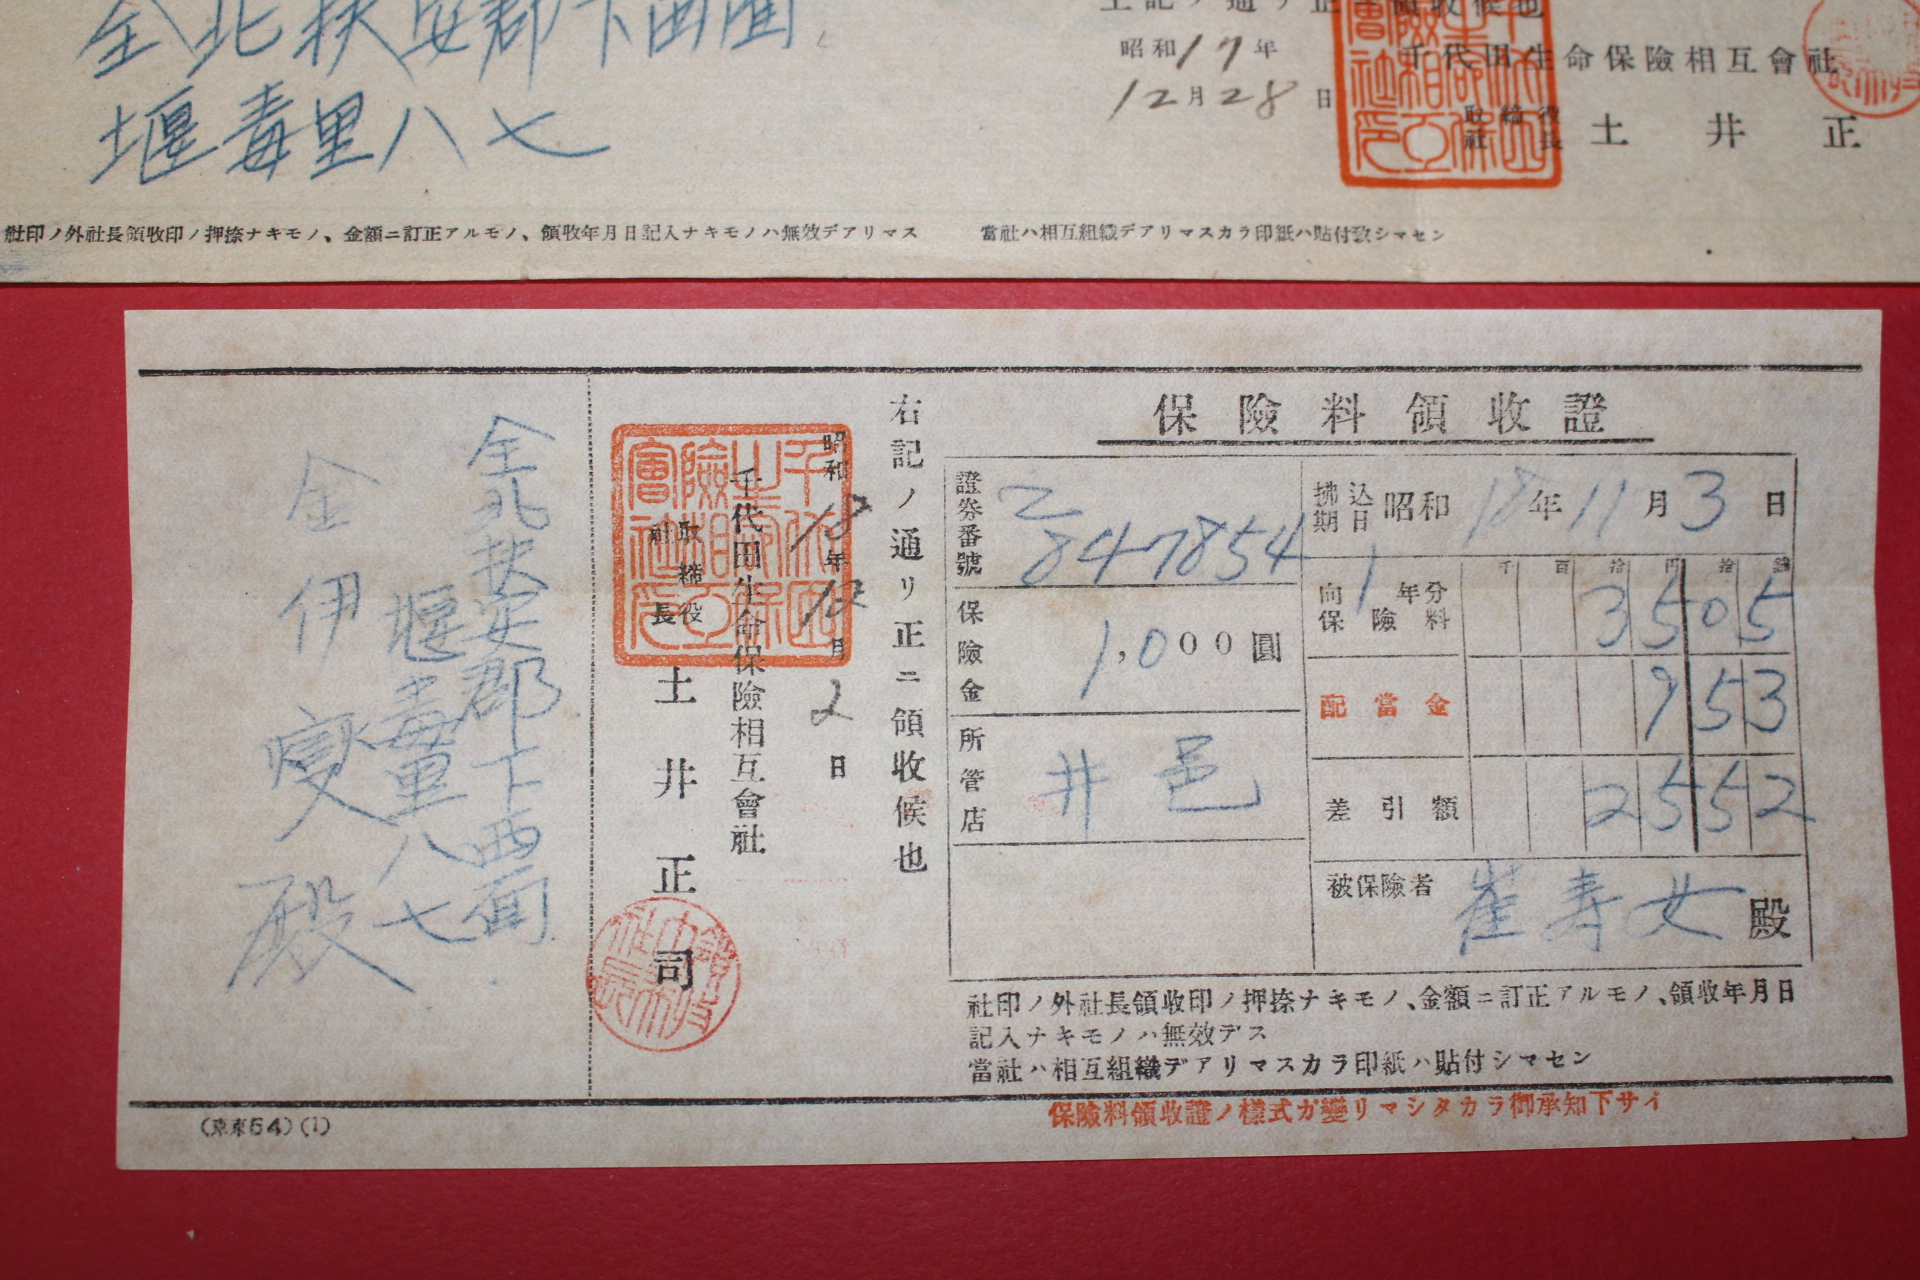 全北扶安郡下西面
堰毒里八七
上記ノ通リ正ニ領收候也
昭和17年
12月28日
千代田生命保險相互會社
取締役
社長
土井正
社印ノ外社長領收印ノ押捺ナキモノ、金額ニ訂正アルモノ、領收年月日記入ナキモノハ無效デアリマス
當社ハ相互組織デアリマスカラ印紙ハ貼付致シマセン
保險料領收證
拂込期日 昭和18年11月3日
證券番號 2847854
向1年分保險料 千 百 拾 円 拾 錢
3505
保險金 1,000圓
配當金 953
所管店 井邑
差引額 2552
被保險者 崔寿女殿
社印ノ外社長領收印ノ押捺ナキモノ、金額ニ訂正アルモノ、領收年月日
記入ナキモノハ無效デス
當社ハ相互組織デアリマスカラ印紙ハ貼付シマセン
右記ノ通リ正ニ領收候也
昭和18年12月2日
千代田生命保險相互會社
取締役
社長
土井正司
全北扶安郡下西面
堰毒里八七
金伊變殿
保險料領收證ノ樣式ガ變リマシタカラ御承知下サイ
(東京64)(1)